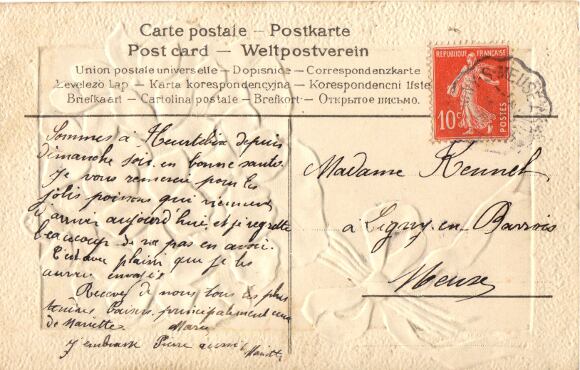 Carte postale — Postkarte
Post card — Weltpostverein
Union postale universelle — Dopisnice — Correspondenzkarte
Levelező Lap — Karta korespondencyjna — Korespondencni listek
Briefkaart — Cartolina postale — Brefkort — Открытое письмо.
REPUBLIQUE FRANÇAISE
10c
POSTES
MEUSE
Sommes à depuis
dimanche soir en bonne santé.
Je vous remercie pour les
jolis poissons qui viennent
d'arriver aujourd'hui, et je regrette
beaucoup de ne pas en avoir.
C'est avec plaisir que je les
aurai envoyés
Recevez de nous tous les plus
tendres baisers principalement ceux
de Mariette. Marie
J'embrasse Pierre aussi Mariette
Madame
à Ligny-en-Barrois
Meuse